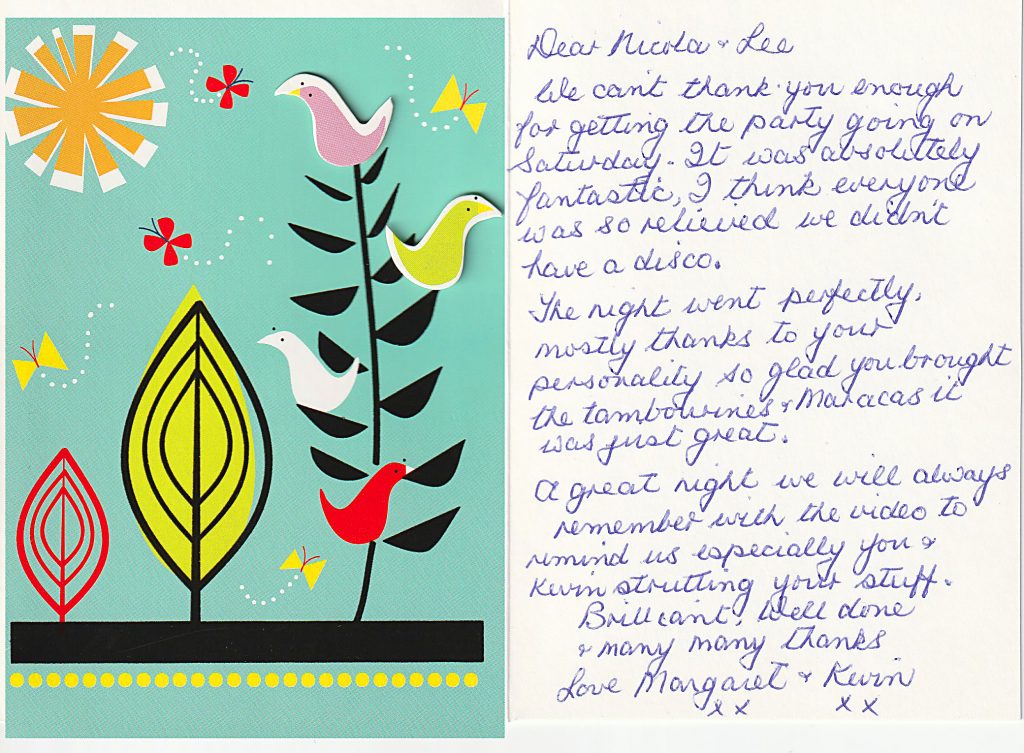 Dear Nicola & Lee
We can't thank you enough
for getting the party going on
Saturday. It was absolutely
fantastic, I think everyone
was so relieved we didn't
have a disco.
The night went perfectly,
mostly thanks to your
personality so glad you brought
the tambourines & Maracas it
was just great.
A great night we will always
remember with the video to
remind us especially you &
Kevin strutting your stuff.
Brillcant. Well done
& many many thanks
Love Margaret & Kevin
xx xx